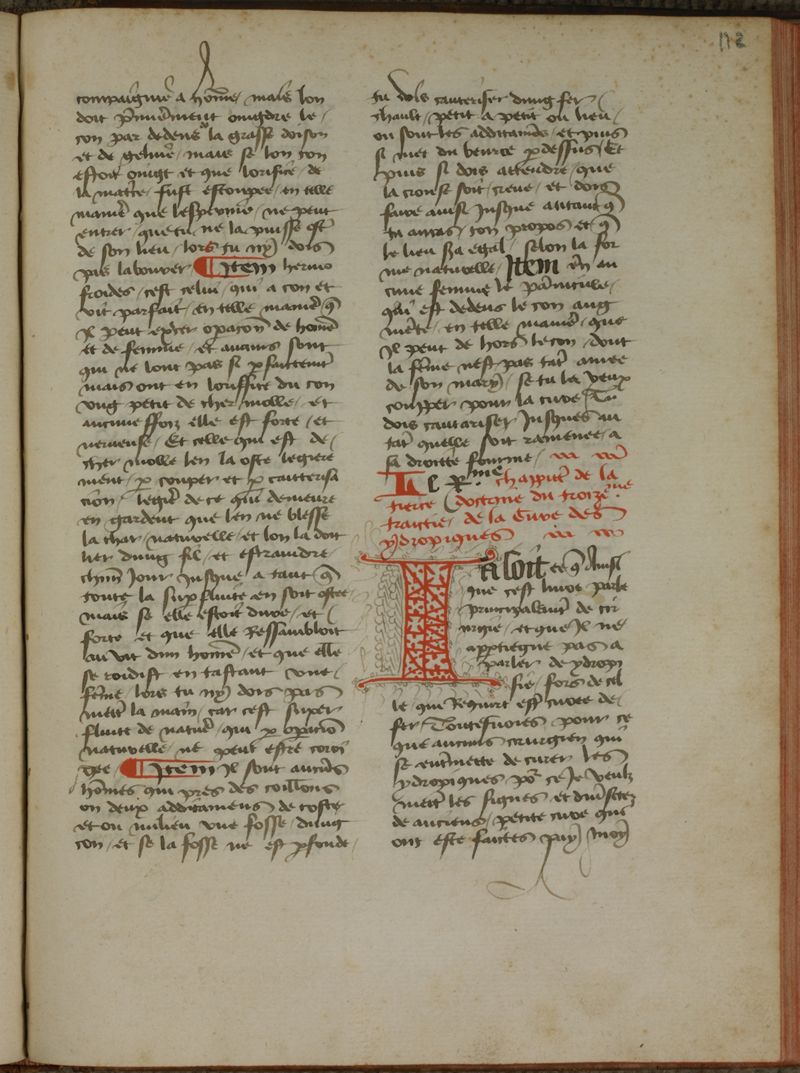 112
compaignie a home / mais lon
doit p̃mierement oingdre le /
con par dedens la grasse doison
et de geline / mais se lon con
estoit oingt et que lorifice / de
la matrice / fust estoupee / en telle
maniere que lesperme / ne peut
entrer / que tu ne la puisse oster
de son lieu / lors tu ny dois
pas labourer Item hermo
froides / cest celui / qui a con et
vit parfait / en telle maniere q̃
Il peut exercer opacion de home
et de femme / et aucuns sont
qui ne lont pas si pfaitemt
mais ont en loriffice du con
vng petit de cher molle / et
aucune ffois elle est forte / et
nerueuse / Et celle qui est de /
cher molle len la oste legiere
ment / p couper et p cauterisa
cion / legier de ce qui demeure
en gardent que len ne blesse
la char / naturelle / et lon la doit
lier dung fil / et estraindre /
chm̃ Jour Jusque a tant q̃
toute la supfluite en soit ostee
mais se elle estoit dure / et
forte et que elle Ressambloit
au vit dun home / et que elle
se roidist en tastant vne /
feme / lors tu ny dois pas
mettr la main / car cest super
fluite de nature / qui p opacion
naturelle / ne peut estre corri
gee / Item Il sont aucuns
homes qui pres des coillons
on deux additamens de coste
et ou milieu vne fosse / dung
con / et se la fosse ne est pfonde /
tu dois cauteriser dung fer /
chault / petit a petit ou lieu /
ou sont les additamens / et puis
si met du beurre p dessus / Et
puis si dois attendre / que
la crouste soit / cieue / et dois
faire ainsi Jusque a tant q̃
tu auras / ton propos et q̃
le lieu sera egal / selon la for
me naturelle / Item en au
cune femme le
qui est dedens le con aug
mente / en telle maniere / que
Il pent de hors le con / dont
la feme nest pas tant amee
de son mary / se tu la veux
coupper pour la cure / Tu
dois cauteriser Jusques au
tant quelle soit ramenee / a
sa droitte fourme /
Le chappitre de la
tierce doctrine du troizeme
traictie / de la Cure des
ydropiques
Ia soit ce q̃ Ainsi
que cest liure parle
principalment de cir
urgie / et que Il ne
apptiegne pas a
parler de ydropi
sie / fors de cel
le qui Requiert est curee de
fer / Toutesuoies pour ce
que aucuns cirurgien qui
se entremette de curer les
ydropiques / pour ce Je veulz
mettre les signes / et diuersetez
de anciens / petite cure que
ont este faictes puy moy